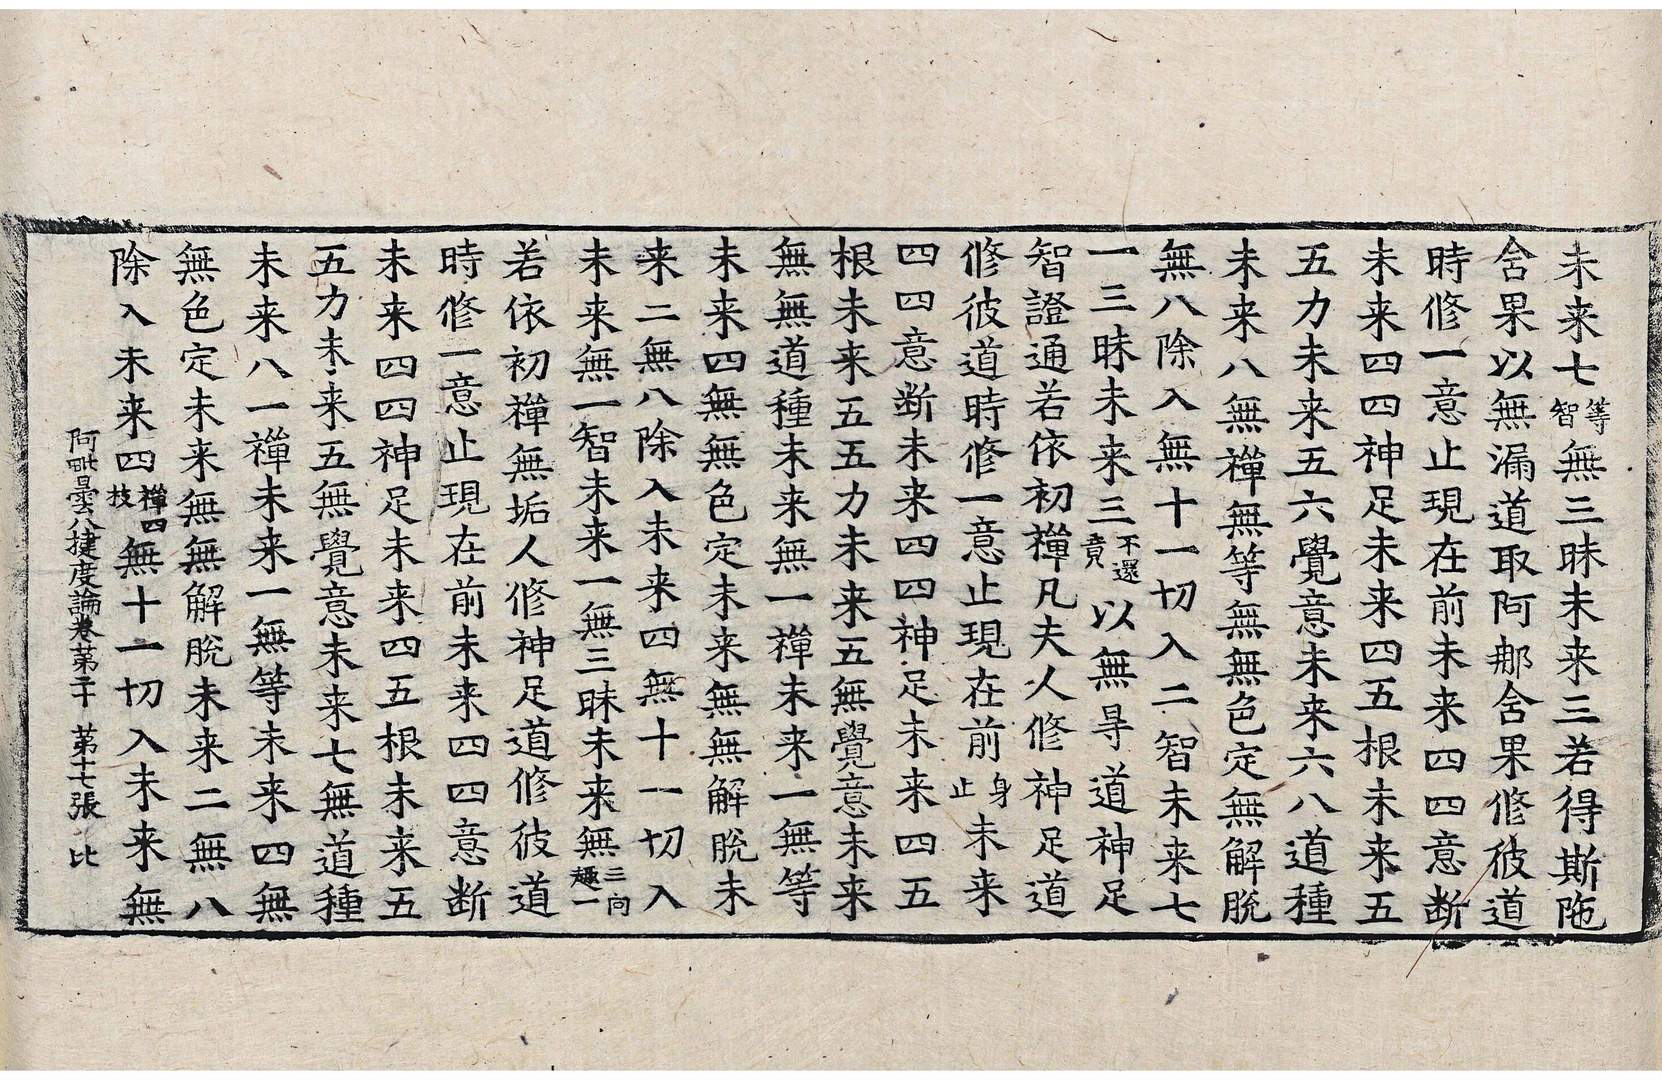 未来七等智無三昧未来三若得斯陁
舍果以無漏道取阿那舍果修彼道
時修一意止現在前未来四四意断
未来四四神足未来四五根未来五
五力未来五六覺意未来六八道種
未来八無禪無等無無色定無解脫
無八除入無十一切入二智未来七
一三昧未来三不還竟以無㝵道神足
智證通若依初禪凡夫人修神足道
修彼道時修一意止現在前身止未来
四四意断未来四四神足未来四五
根未来五五力未来五無覺意未来
無無道種未来無一禪未来一無等
未来四無無色定未来無無解脫未
来二無八除入未来四無十一切入
未来無一智未来一無三昧未来無三向趣一
若依初禪無垢人修神足道修彼道
時修一意止現在前未来四四意断
未来四四神足未来四五根未来五
五力未来五無覺意未来七無道種
未来八一禪未来一無等未来四無
無色定未来無無解脫未来二無八
除入未来四禪四技無十一切入未来無
阿毗曇八揵度論卷第二十 第十七張 比